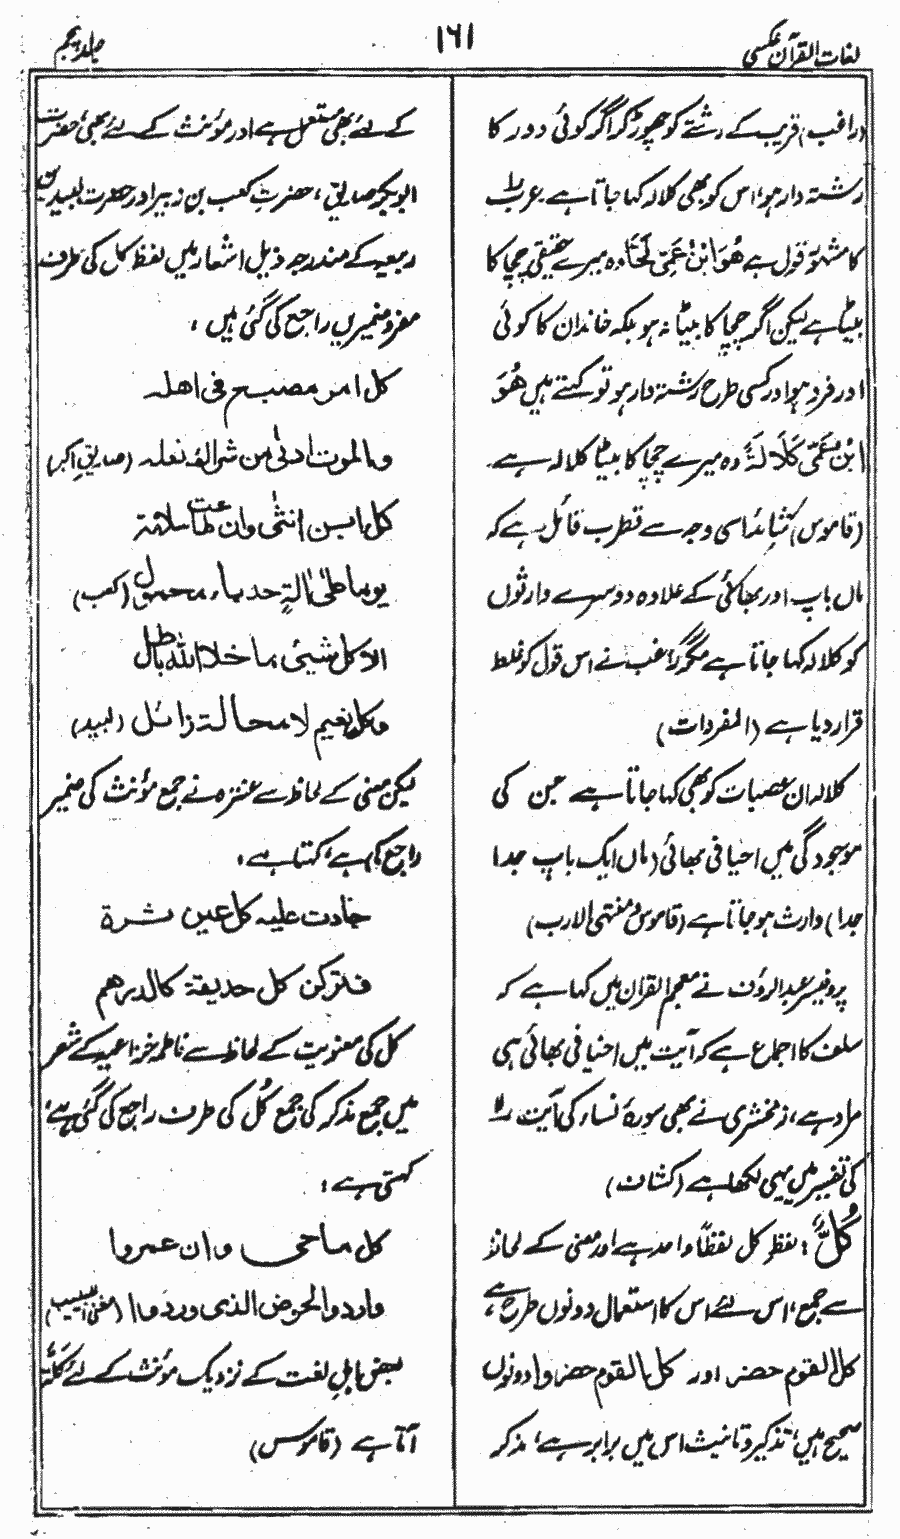 لغات القرآن عکسی
۱۶۱
جلد پنجم
(راغب) قریب کے رشتے کو چھوڑ کر اگر کوئی دور کا
رشتہ دار ہو، اس کو بھی کلالہ کہا جاتا ہے۔ عرب
کا مشہور قول ہے هُوَ ابْنُ عَمِّی لَحًّا وہ میرے حقیقی چچا کا
بیٹا ہے لیکن اگر چچا کا بیٹا نہ ہو بلکہ خاندان کا کوئی
اور فرد ہو اور کسی طرح رشتہ دار ہو تو کہتے ہیں هُوَ
ابْنُ عَمِّی کَلَالَةً وہ میرے چچا کا بیٹا کلالہ ہے۔
(قاموس) شائد اسی وجہ سے قطرب قائل ہے کہ
ماں باپ اور بھائی کے علاوہ دوسرے وارثوں
کو کلالہ کہا جاتا ہے مگر راغب نے اس قول کو غلط
قرار دیا ہے (المفردات)
کلالہ ان عصبات کو بھی کہا جاتا ہے جن کی
موجودگی میں اخیافی بھائی (ماں ایک باپ جدا
جدا) وارث ہو جاتا ہے (قاموس و منتہی الارب)
پروفیسر عبدالرؤف نے معجم القرآن میں کہا ہے کہ
سلف کا اجماع ہے کہ آیت میں اخیافی بھائی ہی
مراد ہے، زمخشری نے بھی سورۂ نساء کی آیت
کی تفسیر میں یہی لکھا ہے (کشاف)
کُلٌّ: لفظ کل لفظاً واحد ہے اور معنی کے لحاظ
سے جمع، اس لئے اس کا استعمال دونوں طرح ہے،
کل القوم حضر اور کل القوم حضروا دونوں
صحیح ہیں، تذکیر و تانیث اس میں برابر ہے، مذکر
کے لئے بھی مستعمل ہے اور مؤنث کے لئے بھی، حضرت
ابوبکر صدیق، حضرت کعب بن زہیر اور حضرت لبید بن
ربیعہ کے مندرجہ ذیل اشعار میں لفظ کل کی طرف
مفرد ضمیریں راجع کی گئی ہیں:
کل امرء مصبح فی اهله
والموت ادنی من شراك نعله (صدیق اکبر)
کل ابن انثی وان طالت سلامته
یوما علی آلة حدباء محمول (کعب)
الا کل شیئ ما خلا الله باطل
وکل نعیم لا محالة زائل (لبید)
لیکن معنی کے لحاظ سے عنترہ نے جمع مؤنث کی ضمیر
راجع کی ہے، کہتا ہے:
جادت علیه کل عین ثرة
فترکن کل حدیقة کالدرهم
کل کی معنویت کے لحاظ سے فاطمہ خزاعیہ کے شعر
میں جمع مذکر کی جمع کُل کی طرف راجع کی گئی ہے،
کہتی ہے:
کل ما حی وان عمروا
واردوا الحوض الذی وردوا (مغنی اللبیب)
بعض اہل لغت کے نزدیک مؤنث کے لئے کُلَّةٌ
آتا ہے (قاموس)